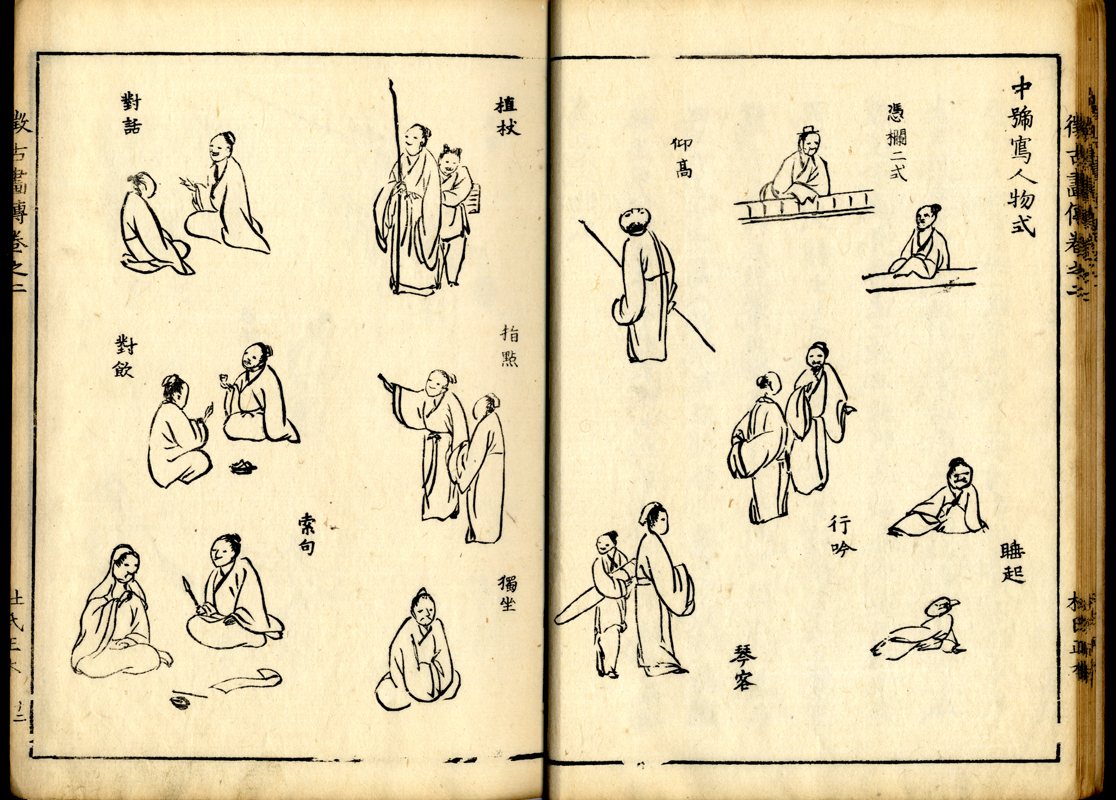 徴古畫傳卷之二
中號寫人物式
憑欄二式
睡起
仰高
行吟
琴客
植杖
指點
獨坐
索句
對話
對飲
徴古畫傳卷之二